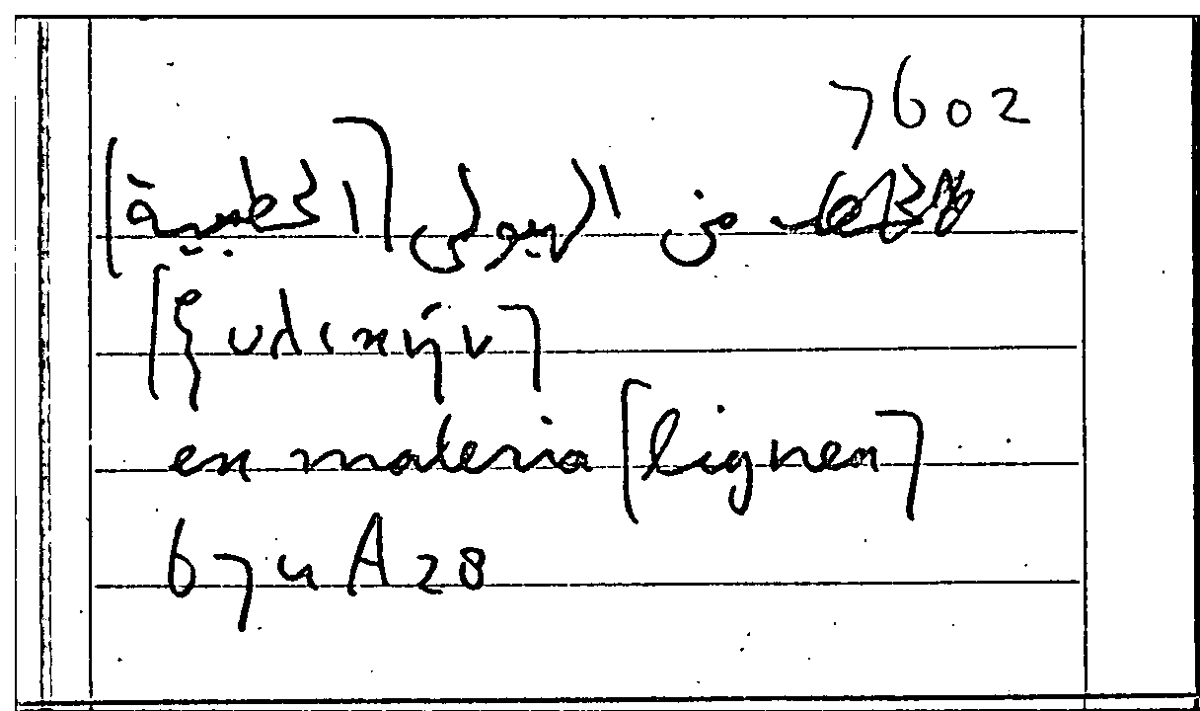 7602
من الهيولى [الخطبية]
[ξυλικὴν]
ex materia [lignea]
674 A 28